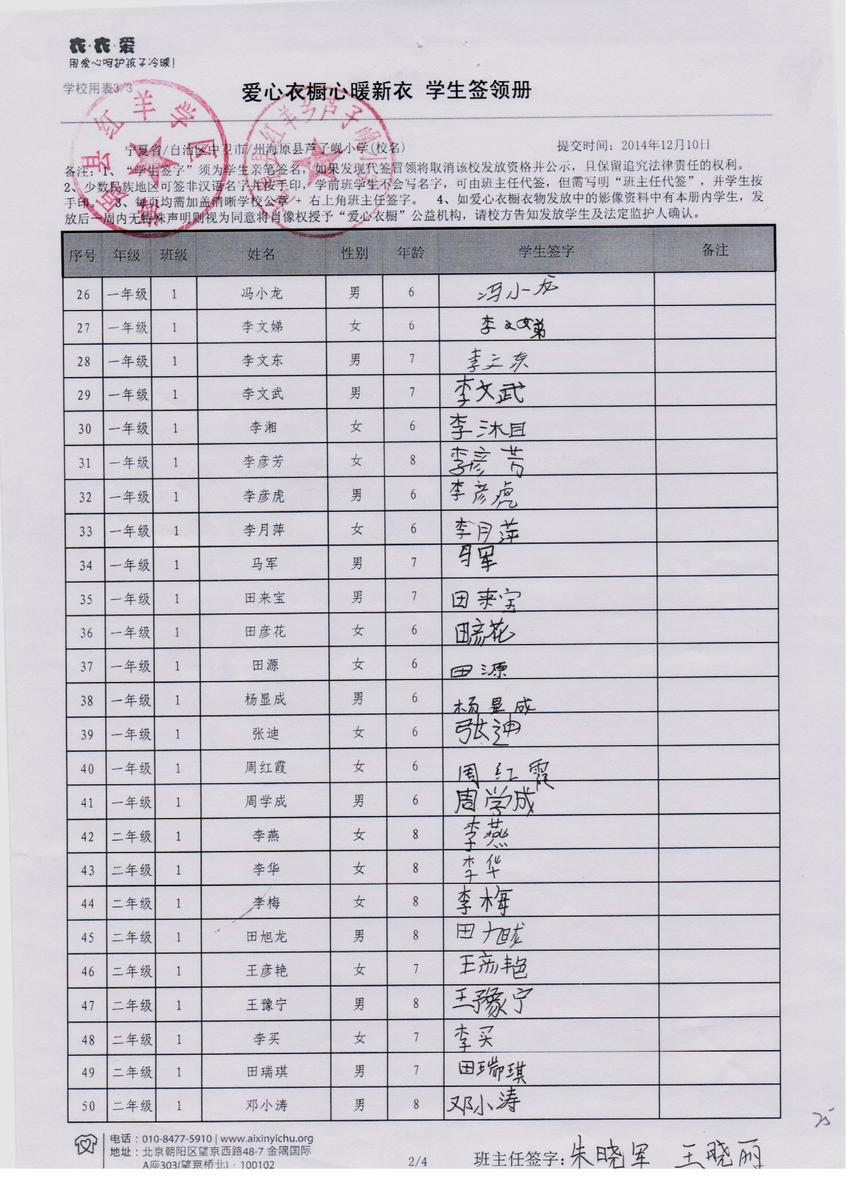 衣·衣·爱
用爱心呵护孩子冷暖!
学校用表3/3
爱心衣橱心暖新衣 学生签领册
宁夏省/自治区中卫市/州海原县芦子岘小学(校名) 提交时间：2014年12月10日
备注：1、“学生签字”须为学生亲笔签名，如果发现代签冒领将取消该校发放资格并公示，且保留追究法律责任的权利。
2、少数民族地区可签非汉语名字并按手印，学前班学生不会写名字，可由班主任代签，但需写明“班主任代签”，并学生按
手印。 3、每页均需加盖清晰学校公章，右上角班主任签字。 4、如爱心衣橱衣物发放中的影像资料中有本册内学生，发
放后一周内无特殊声明则视为同意将肖像权授予“爱心衣橱”公益机构，请校方告知发放学生及法定监护人确认。
序号 年级 班级 姓名 性别 年龄 学生签字 备注
26 一年级 1 冯小龙 男 6 冯小龙
27 一年级 1 李文娣 女 6 李文娣
28 一年级 1 李文东 男 7 李文东
29 一年级 1 李文武 男 7 李文武
30 一年级 1 李湘 女 6 李沐目
31 一年级 1 李彦芳 女 8 李彦芳
32 一年级 1 李彦虎 男 6 李彦虎
33 一年级 1 李月萍 女 6 李月萍
34 一年级 1 马军 男 7 马军
35 一年级 1 田来宝 男 7 田来宝
36 一年级 1 田彦花 女 6 田彦花
37 一年级 1 田源 女 6 田源
38 一年级 1 杨显成 男 6 杨显成
39 一年级 1 张迪 女 6 张迪
40 一年级 1 周红霞 女 6 周红霞
41 一年级 1 周学成 男 6 周学成
42 二年级 1 李燕 女 8 李燕
43 二年级 1 李华 女 8 李华
44 二年级 1 李梅 女 8 李梅
45 二年级 1 田旭龙 男 8 田旭龙
46 二年级 1 王彦艳 女 7 王彦艳
47 二年级 1 王豫宁 男 8 王豫宁
48 二年级 1 李买 女 7 李买
49 二年级 1 田瑞琪 男 7 田瑞琪
50 二年级 1 邓小涛 男 8 邓小涛
25
电话：010-8477-5910 | www.aixinyichu.org
地址：北京朝阳区望京西路48-7 金隅国际
A座303(望京桥北)·100102
2/4
班主任签字：朱晓军 王晓丽